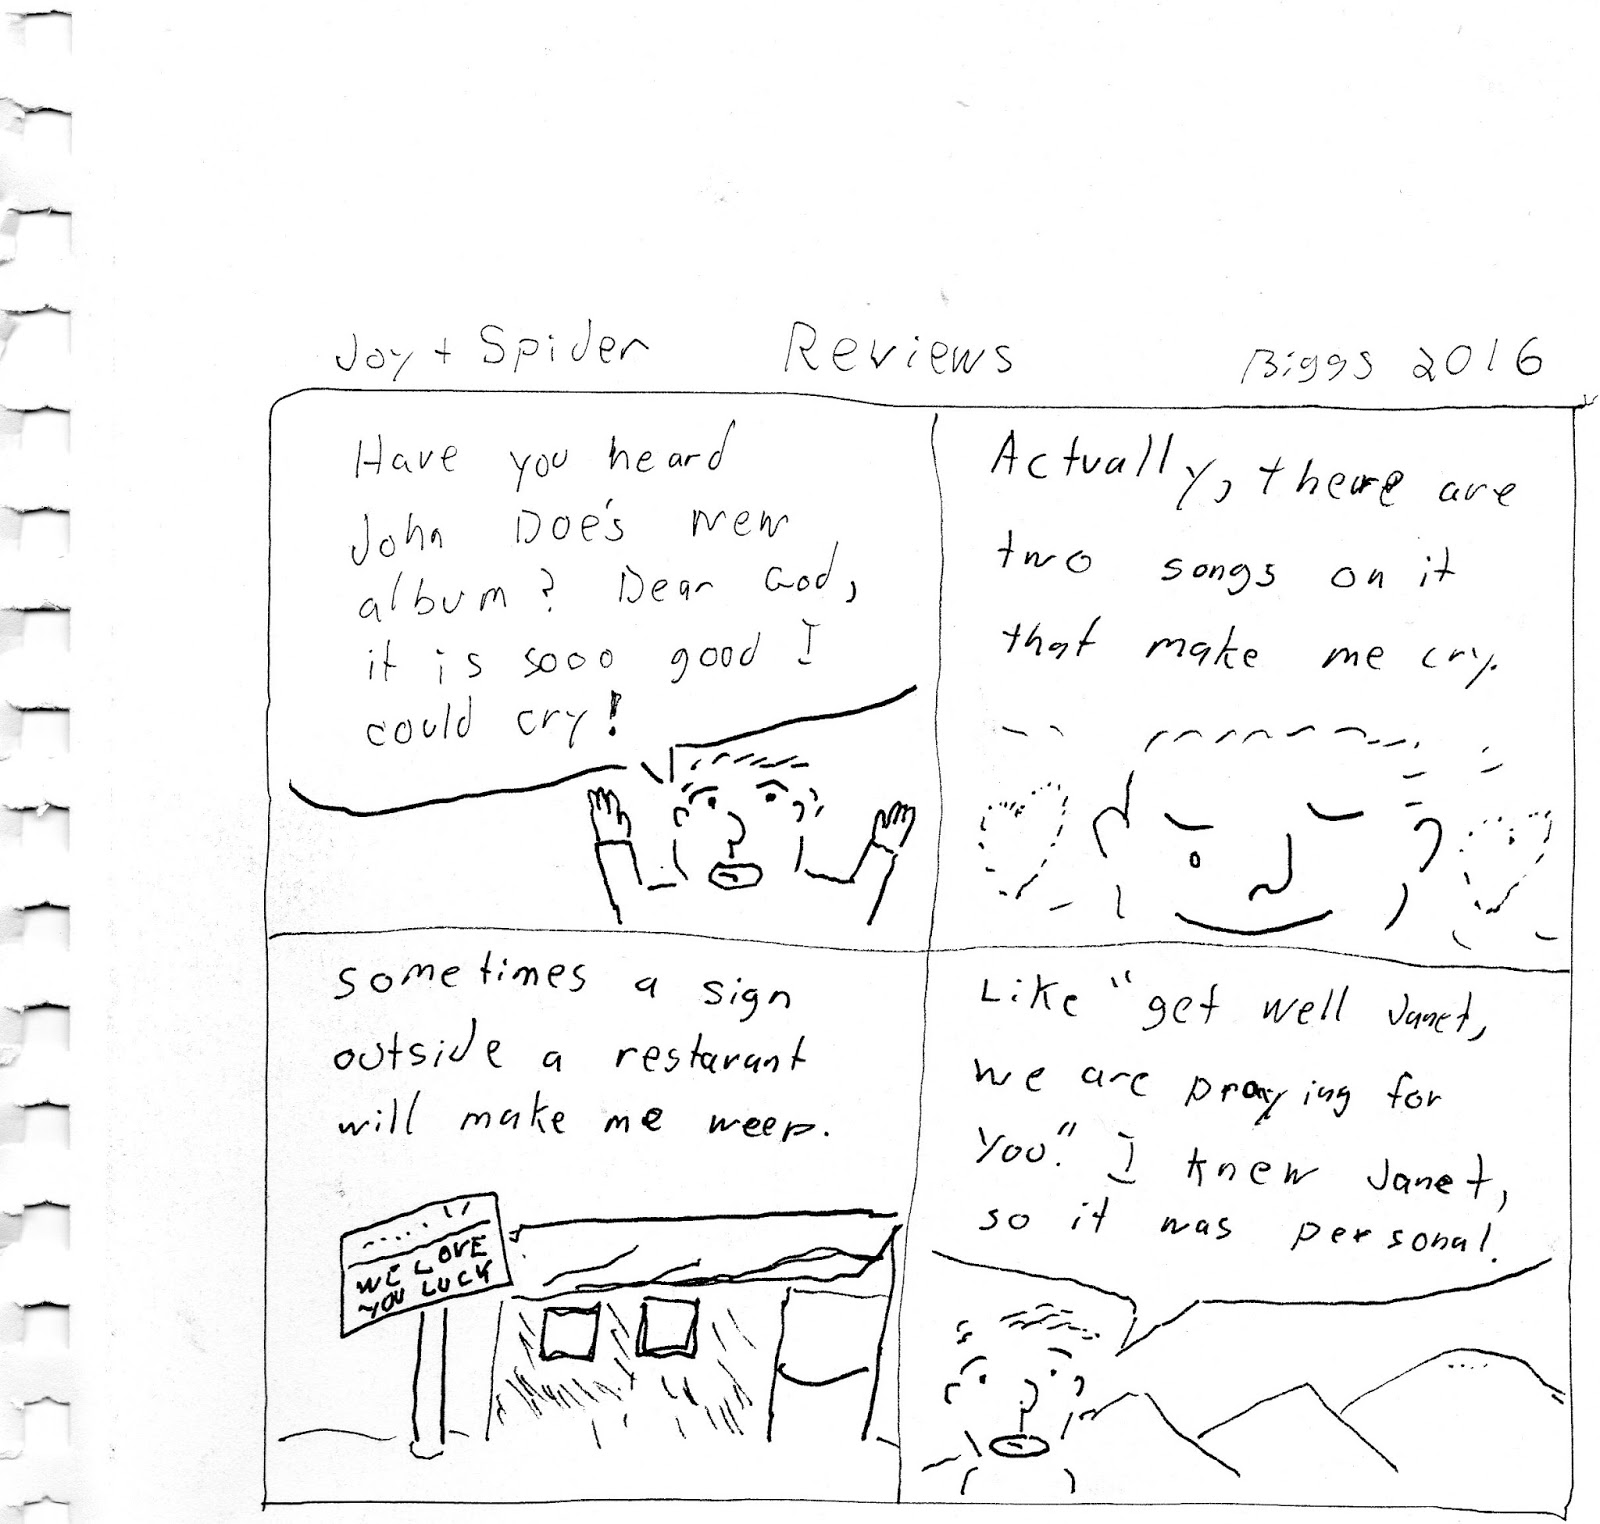 Joy + Spider Reviews Biggs 2016
Have you heard
John Doe's new
album? Dear God,
it is sooo good I
could cry!
Actually, there are
two songs on it
that make me cry.
sometimes a sign
outside a restarant
will make me weep.
WE LOVE
YOU LUCK
Like "get well Janet,
we are praying for
you." I knew Janet,
so it was personal.